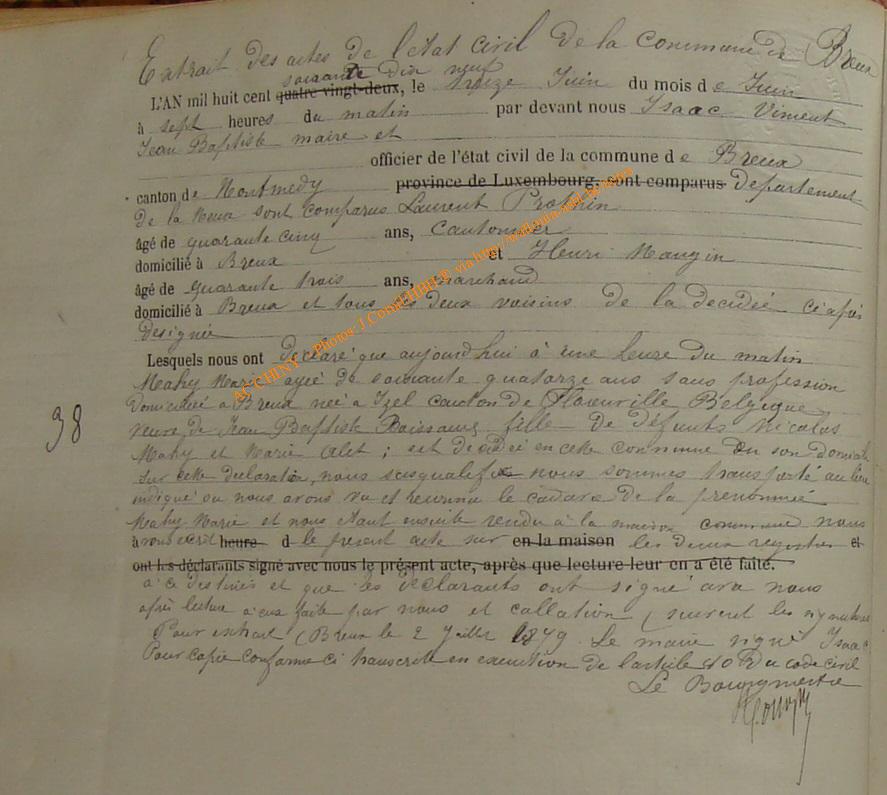 Extrait des actes de l'état civil de la commune de Breux
soixante dix neuf
L'AN mil huit cent quatre vingt-deux, le treize Juin du mois de Juin
à sept heures du matin par devant nous Isaac Viment
Jean Baptiste maire et
officier de l'état civil de la commune de Breux
canton de Montmedy province de Luxembourg, sont comparus Departement
de la Meuse sont comparus Laurent
âgé de quarante cinq ans, Cantonnier
domicilié à Breux et Henri Mangin
âgé de quarante trois ans, marchand
domicilié à Breux et tous les deux voisins de la décédée ci après
designée
Lesquels nous ont déclaré que aujourd'hui à une heure du matin
Mahy Marie agée de soixante quatorze ans sans profession
domiciliée a Breux née a Izel canton de Florenville Belgique
veuve de Jean Baptiste fille de défunts Nicolas
Mahy et Marie Alet ; est décédée en cette commune en son domicile
sur cette declaration, nous susqualifié nous sommes transporté au lieu
indiqué ou nous avons vu et reconnu le cadavre de la prenommée
Mahy Marie et nous étant ensuite rendu à la maison commune nous
avons écrit heure d le présent acte sur en la maison les deux registres et
ont les déclarants signé avec nous le présent acte, après que lecture leur en a été faite.
a ce destinés et que les déclarants ont signé avec nous
après lecture a eux faite par nous et collation (suivent les signatures
Pour extrait (Breux le 2 Juillet 1879 Le maire signé Isaac
Pour copie conforme ci transcrite en execution de l'article 80 du code civil
Le Bourgmestre
98
AC CHINY - Photos J.Constant © via http://williame.ardenne.org